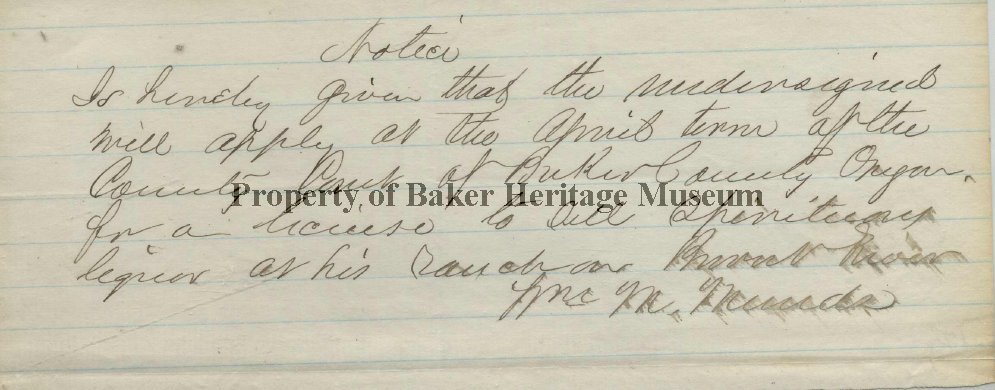 Notice
Is hereby given that the undersigned
will apply at the April term of the
County Court of Baker County Oregon.
Property of Baker Heritage Museum
for a license to sell Spirituous
liquor at his ranch on Burnt River
Wm M.